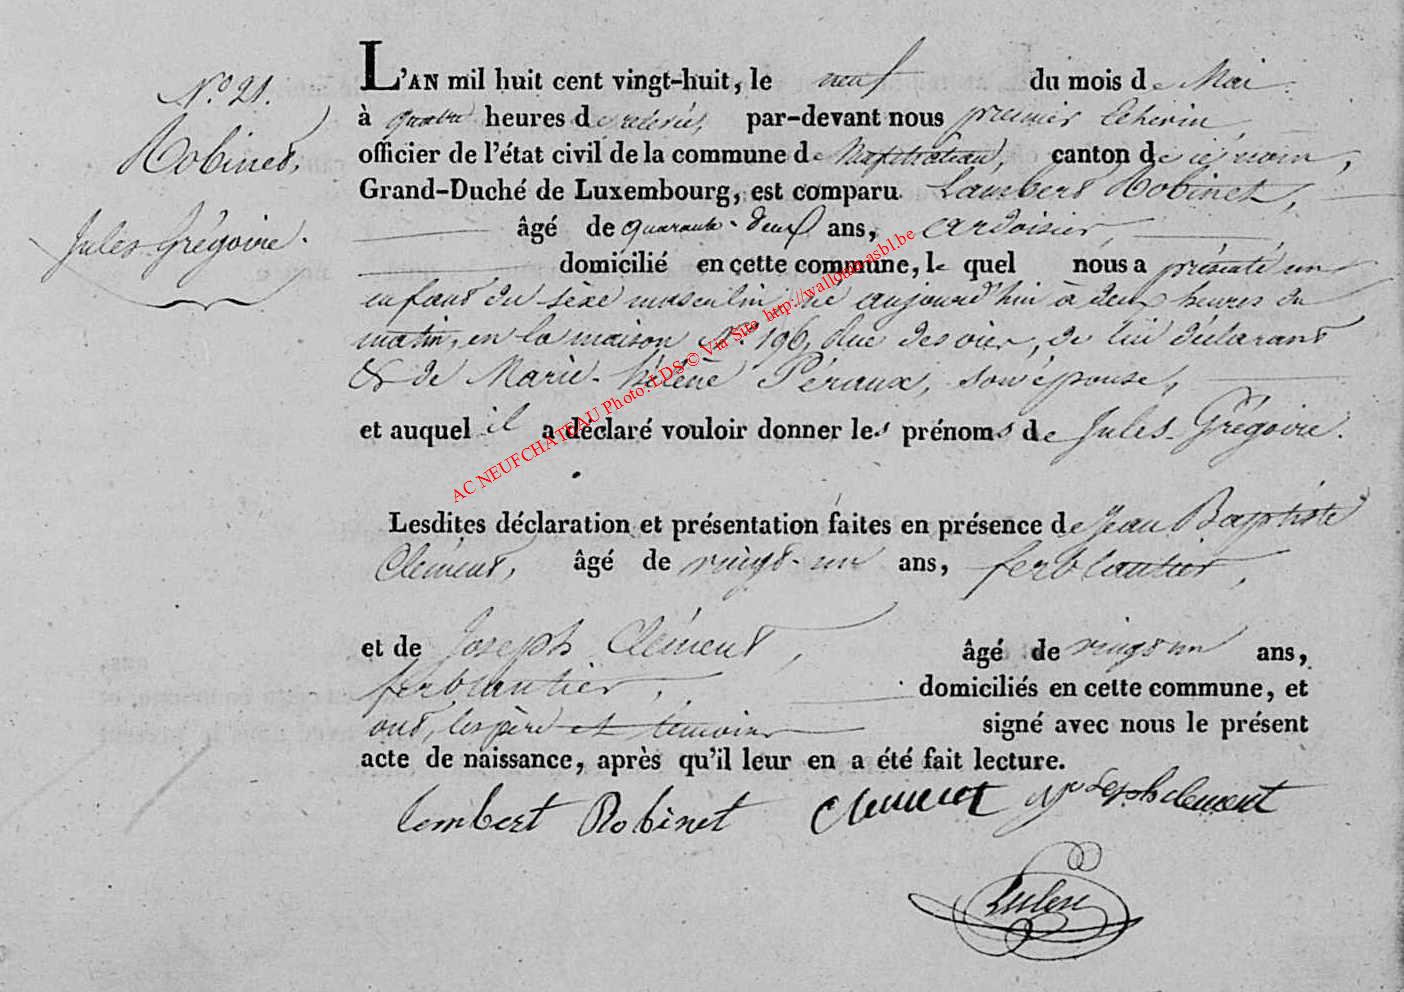 N.° 21.
Robinet,
Jules-Grégoire.
L'AN mil huit cent vingt-huit, le neuf du mois de Mai
à quatre heures de relevée, par-devant nous premier Echevin,
officier de l'état civil de la commune de Neufchateau, canton de ce nom,
Grand-Duché de Luxembourg, est comparu Lambert Robinet,
âgé de quarante-deux ans, ardoisier,
domicilié en cette commune, le quel nous a présenté un
enfant du sèxe masculin né aujourd'hui à deux heures du
matin, en la maison N.° 196, Rue de, de lui déclarant
& de Marie-Hélène Péraux, son épouse,
et auquel il a déclaré vouloir donner les prénoms de Jules-Grégoire.
Lesdites déclaration et présentation faites en présence de Jean Baptiste
Clément, âgé de vingt-un ans, ferblantier,
et de Joseph Clément, âgé de vingt un ans,
ferblantier, domiciliés en cette commune, et
ont, les père et témoins signé avec nous le présent
acte de naissance, après qu'il leur en a été fait lecture.
lembert Robinet Clement Joseph clement
AC NEUFCHATEAU Photo: LDS © Via Site http://wallonia-asbl.be